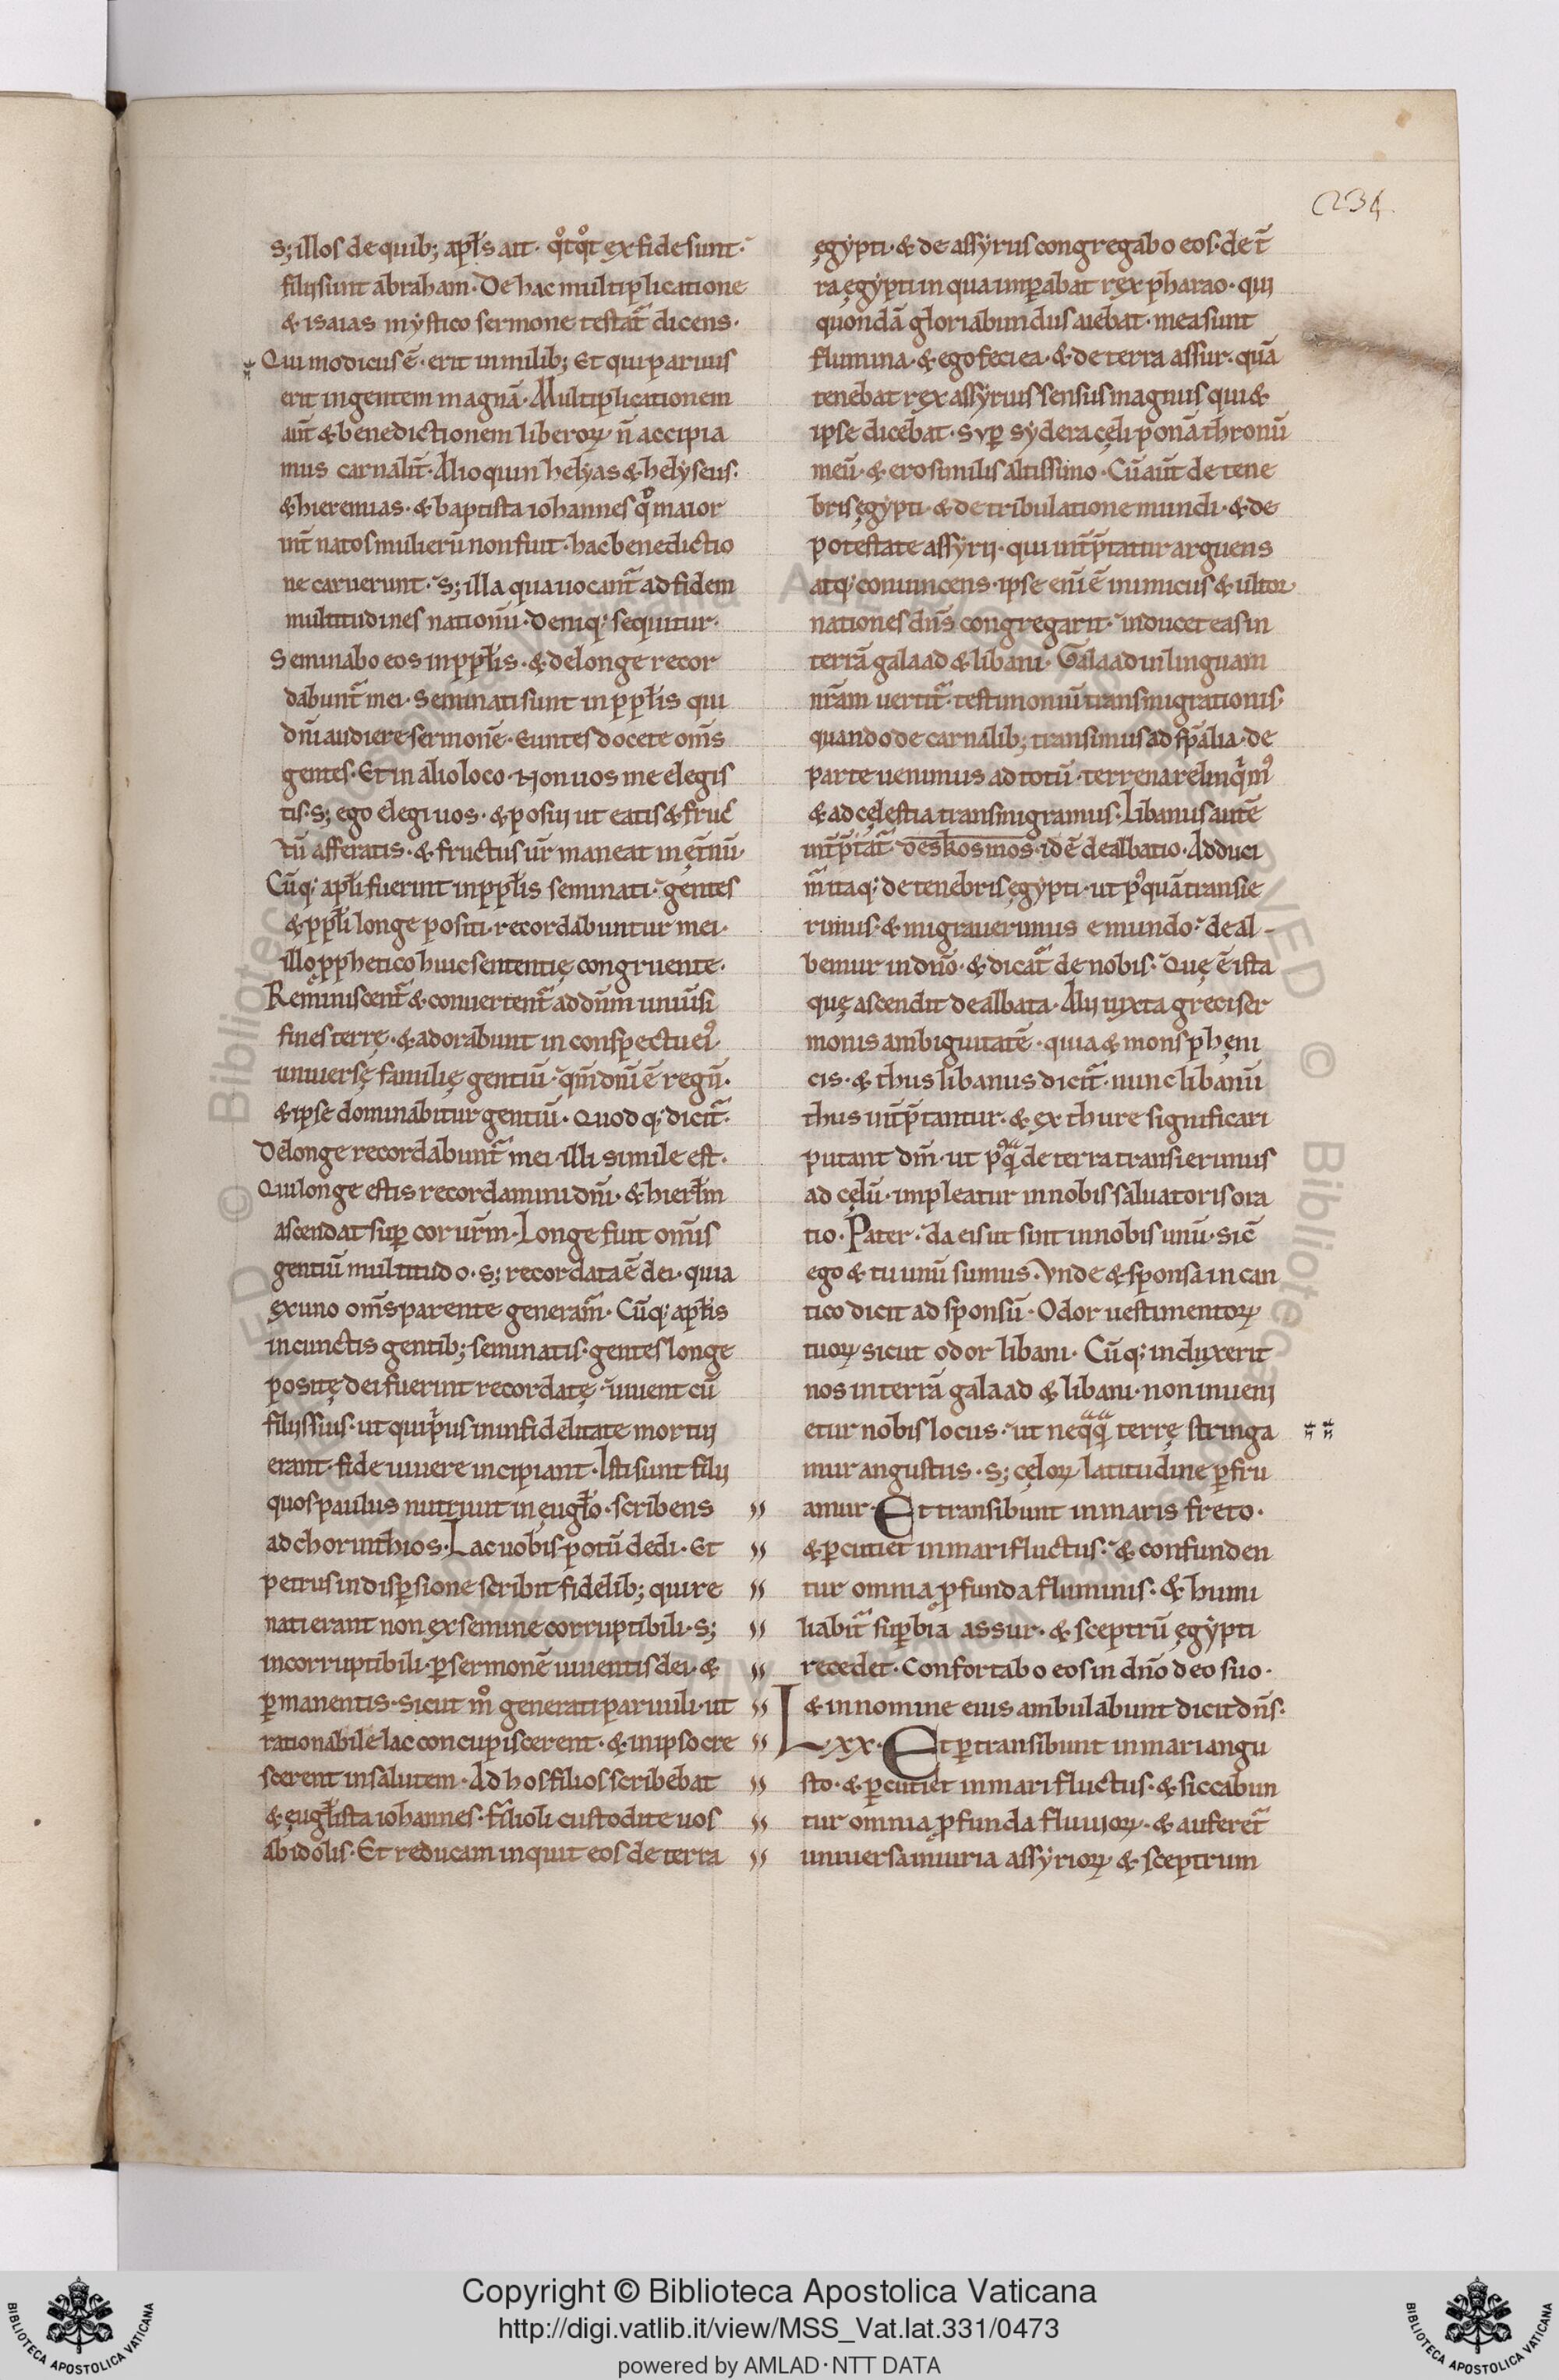 234
s; illos de quib; apłs ait· qͦtqͦt ex fide sunt·
filii sunt abraham· De hac multiplicatione
& isaias mystico sermone testat᷑ dicens·
Qui modicus ē· erit in milib; Et qui paruus
erit in gentem magnā· Multiplicationem
aut̄ & benedictionem liberoꝝ n̄ accipia
mus carnalit̄· Alioquin helyas & helyseus·
& hieremias· & baptista iohannes qͦ maior
int̄ natos mulierū non fuit· hac benedictio
ne caruerunt· s; illa qua uocant᷑ ad fidem
multitudines nationū· Deniq; sequitur·
Seminabo eos in ppłis· & de longe recor
dabunt᷑ mei· Seminati sunt in ppłis qui
dn̄i audiere sermonē· Euntes docete om̄s
gentes· Et in alio loco· Non uos me elegis
tis· s; ego elegi uos· & posui ut eatis & fruc̄
tū afferatis· & fructus ur̄ maneat in ęt̄nū·
Cūq; apłi fuerint in ppłis seminati· gentes
& ppłi longe positi· recordabuntur mei·
illo ꝓphetico huic sententię congruente·
Reminiscent᷑ & conuertent᷑ ad dn̄m uniuersi
fines terrę· & adorabunt in conspectu eiꝰ
uniuersę familię gentiū· qm̄ dn̄i ē regn̄·
& ipse dominabitur gentiū· Quodq; dicit᷑·
De longe recordabunt᷑ mei· illi simile est·
Qui longe estis recordamini dn̄i· & hierłm
ascendat suꝑ cor ur̄m· Longe fuit om̄is
gentiū multitudo· s; recordata ē dei· quia
ex uno om̄s parente generam̄· Cūq; apłis
in cunctis gentib; seminatis· gentes longe
positę dei fuerint recordatę· uiuent cū
filiis suis· ut qui pͥus in infidelitate mortui
erant· fide uiuere incipiant· Isti sunt filii
quos paulus nutriuit in ęugło· scribens
ad chorinthios· Lac uobis potū dedi· Et
petrus in disꝑsione scribit fidelib; qui re
nati erant non ex semine corruptibili· s;
incorruptibili· ꝑ sermonē uiuentis dei· &
ꝑmanentis· Sicut mͦ generati paruuli· ut
rationabile lac concupiscerent· & in ipso cre
scerent in salutem· Ad hos filios scribebat
& ęugłista iohannes· filioli custodite uos
ab idolis· Et reducam inquit eos de terra
ęgypti· & de assyriis congregabo eos· de t̄
ra ęgypti in qua imꝑabat rex pharao· qui
quondā gloriabundus aiebat· mea sunt
flumina· & ego feci ea· & de terra assur· quā
tenebat rex assyrius sensus magnus qui &
ipse dicebat· Suꝑ sydera cęli ponā thronū
meū· & ero similis altissimo· Cū aut̄ de tene
bris ęgypti· & de tribulatione mundi· & de
potestate assyrii· qui int̄p̄tatur arguens
atq; conuincens· ipse eni̅ ē inimicus & ultor
nationes dn̄s congregarit· inducet eas in
terrā galaad & libani· Galaad in linguam
nr̄am uertit᷑· testimoniū transmigrationis·
quando de carnalib; transimus ad sp̄alia· de
parte uenimus ad totū· terrena relinqͥmꝰ
& ad cęlestia transmigramus· Libanus autē
int̄p̄tat᷑ deskosmos· id ē dealbatio· Adduci
m᷑ itaq; de tenebris ęgypti· ut pꝰquā transie
rimus· & migrauerimus e mundo· deal-
bemur in dn̄o· & dicat᷑ de nobis· Quę ē ista
quę ascendit dealbata· Alii iuxta greci ser
monis ambiguitatē· quia & mons phęni
cis· & thus libanus dicit᷑· nunc libanū
thus int̄p̄tantur· & ex thure significari
putant dm̄· ut pꝰqͣ de terra transierimus
ad cęlū· impleatur in nobis saluatoris ora
tio· Pater· da eis ut sint in nobis unū· sic̄
ego & tu unū sumus· Vnde & sponsa in can
tico dicit ad sponsū· Odor uestimentoꝝ
tuoꝝ sicut odor libani· Cūq; induxerit
nos in terrā galaad & libani· non inueni
etur nobis locus· ut neqͣqͣ terrę stringa
mur angustiis· s; cęloꝝ latitudine ꝑfru
amur· Et transibunt in maris freto·
& ꝑcutiet in mari fluctus· & confunden
tur omnia ꝓfunda fluminis· & humi
liabit᷑ suꝑbia assur· & sceptrū ęgypti
recedet· Confortabo eos in dn̄o deo suo·
& in nomine eius ambulabunt dicit dn̄s·
Lxx· Et ꝑtransibunt in mari angu
sto· & ꝑcutiet in mari fluctus· & siccabun
tur omnia ꝓfunda fluuioꝝ· & auferet᷑
uniuersa iniuria assyrioꝝ & sceptrum
Copyright © Biblioteca Apostolica Vaticana
http://digi.vatlib.it/view/MSS_Vat.lat.331/0473
powered by AMLAD · NTT DATA
BIBLIOTECA APOSTOLICA VATICANA
BIBLIOTECA APOSTOLICA VATICANA